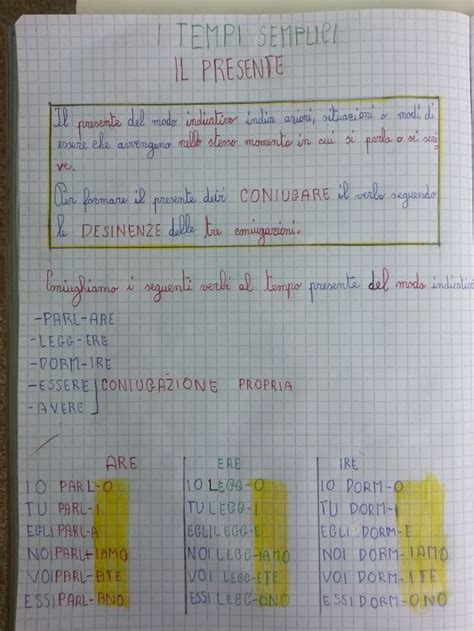 I TEMPI SEMPLICI
IL PRESENTE
Il presente del modo indicativo indica azioni, situazioni o modi di
essere che avvengono nello stesso momento in cui si parla o si scri
ve.
Per formare il presente devi CONIUGARE il verbo seguendo
le DESINENZE delle tre coniugazioni.
Coniughiamo i seguenti verbi al tempo presente del modo indicativo
-PARL-ARE
-LEGG-ERE
-DORM-IRE
-ESSERE
-AVERE
CONIUGAZIONE PROPRIA
ARE ERE IRE
IO PARL-O IO LEGG-O IO DORM-O
TU PARL-I TU LEGG-I TU DORM-I
EGLI PARL-A EGLI LEGG-E EGLI DORM-E
NOI PARL-IAMO NOI LEGG-IAMO NOI DORM-IAMO
VOI PARL-ATE VOI LEGG-ETE VOI DORM-ITE
ESSI PARL-ANO ESSI LEGG-ONO ESSI DORM-ONO